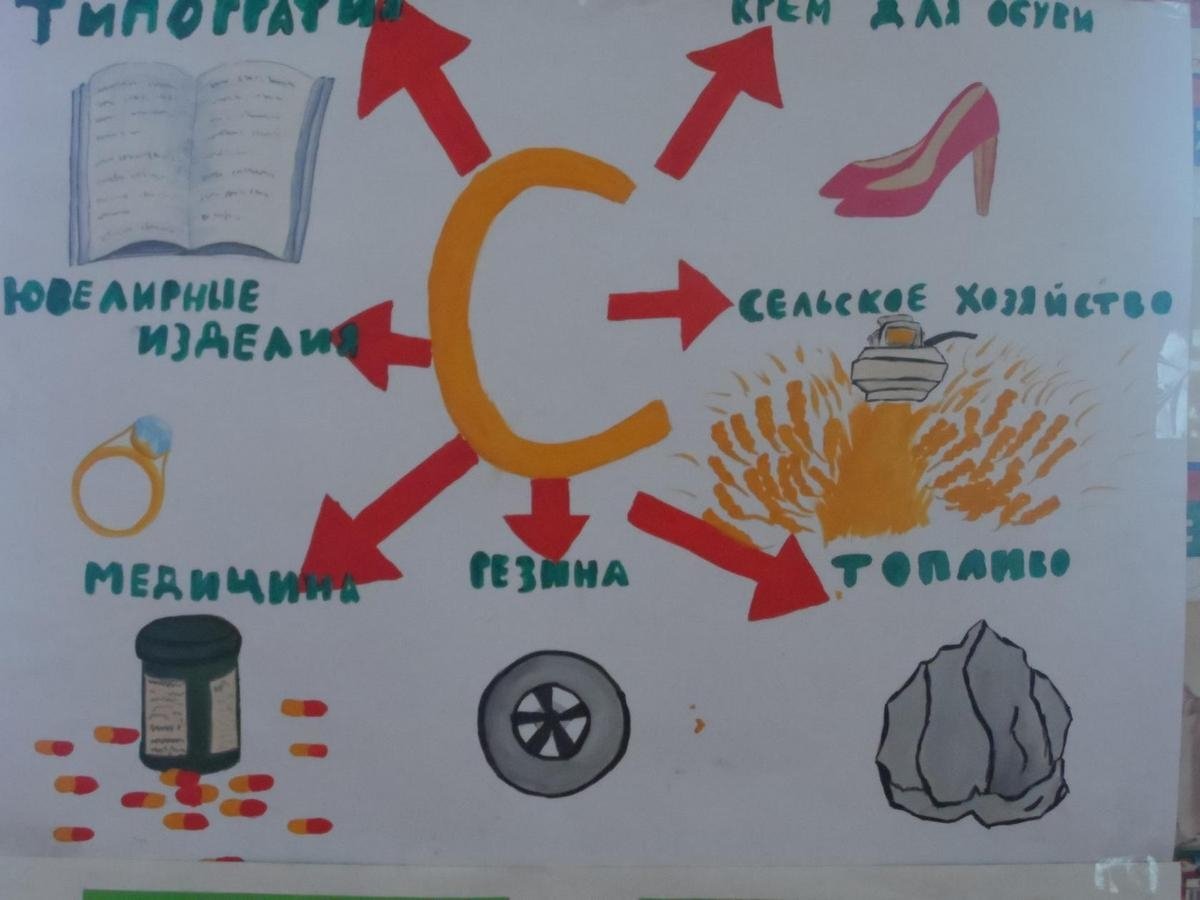 ТИПОГРАФИЯ
КРЕМ ДЛЯ ОБУВИ
С
ЮВЕЛИРНЫЕ
ИЗДЕЛИЯ
СЕЛЬСКОЕ ХОЗЯЙСТВО
МЕДИЦИНА
РЕЗИНА
ТОПЛИВО